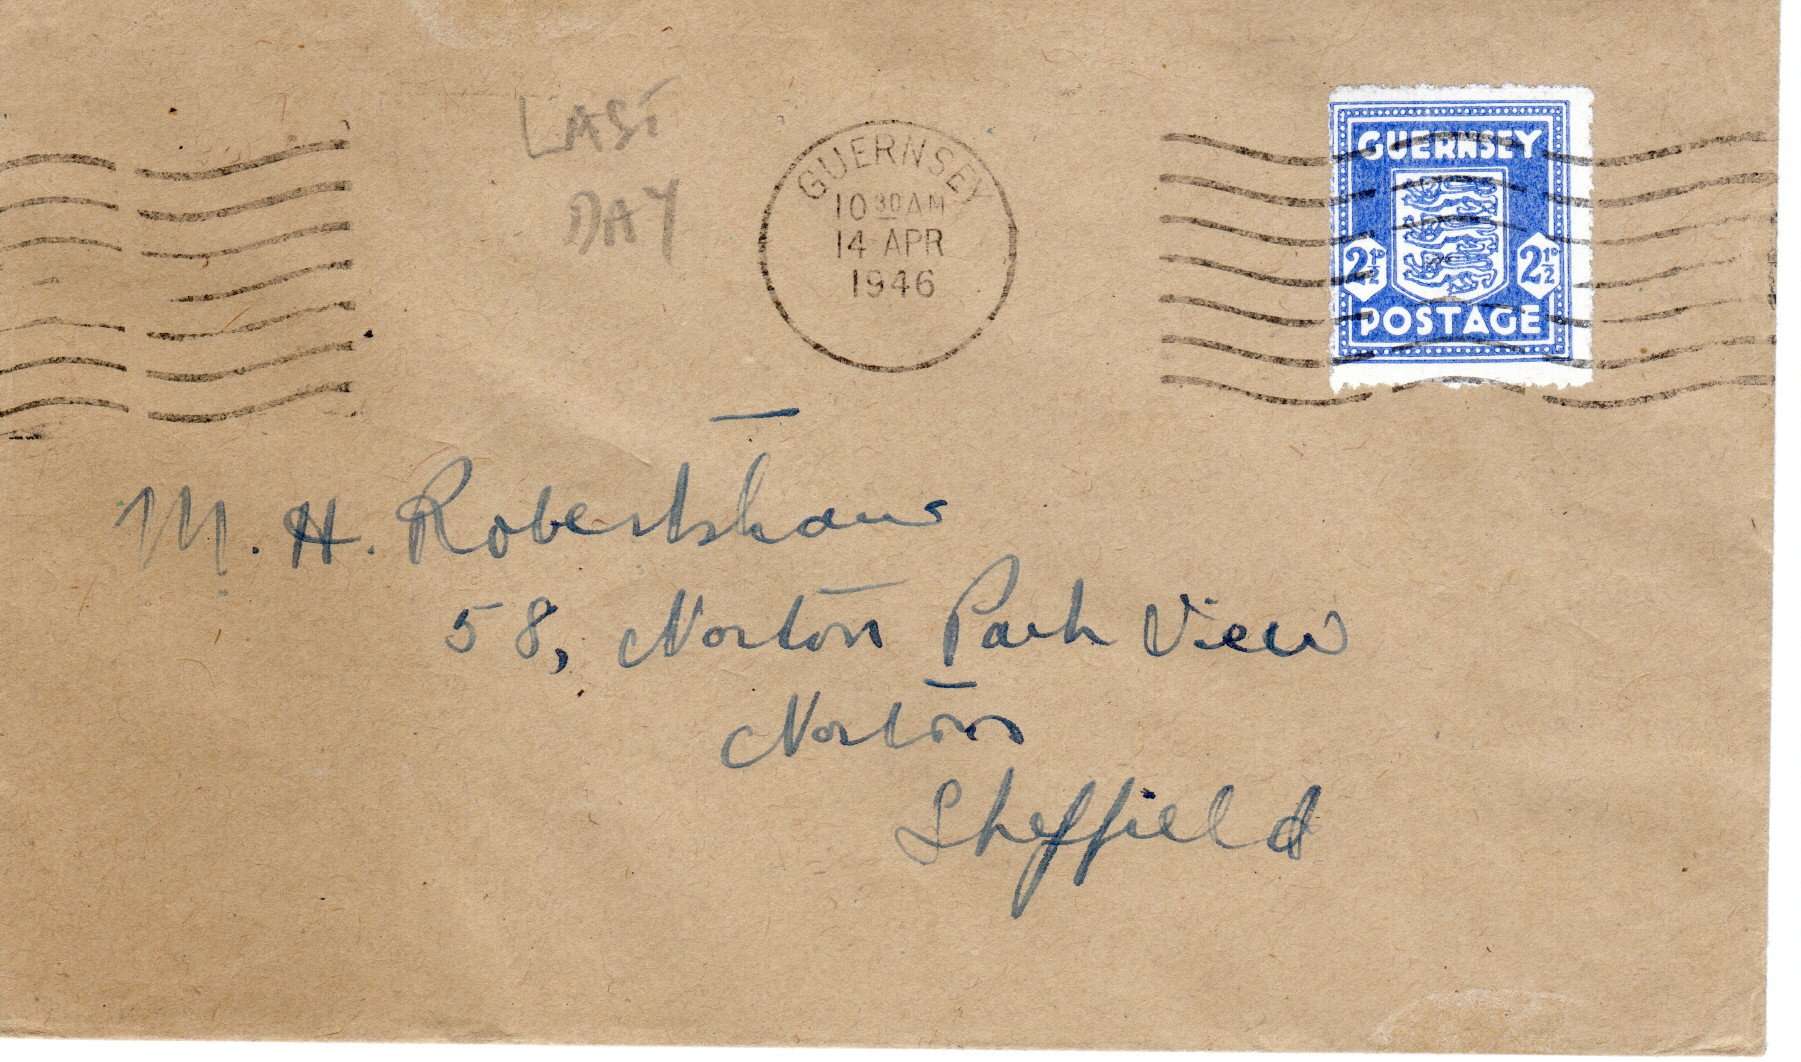 LAST
DAY
GUERNSEY
10 30 AM
14 APR
1946
GUERNSEY
2½D 2½D
POSTAGE
M. H. Robertshaw
58, Norton Park View
Norton
Sheffield